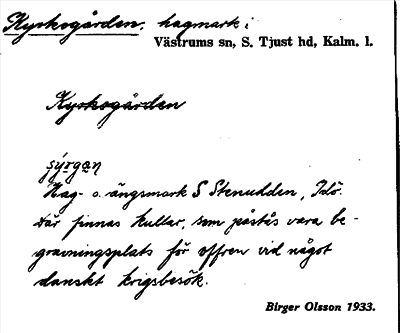 Kyrkogården, hagmark i
Västrums sn, S. Tjust hd, Kalm. l.
Kyrkogården
Hag- o. ängsmark S Stenudden, Idö.
där finnas kullar, som påstås vara be-
gravningsplats för offren vid något
danskt krigsbesök.
Birger Olsson 1933.